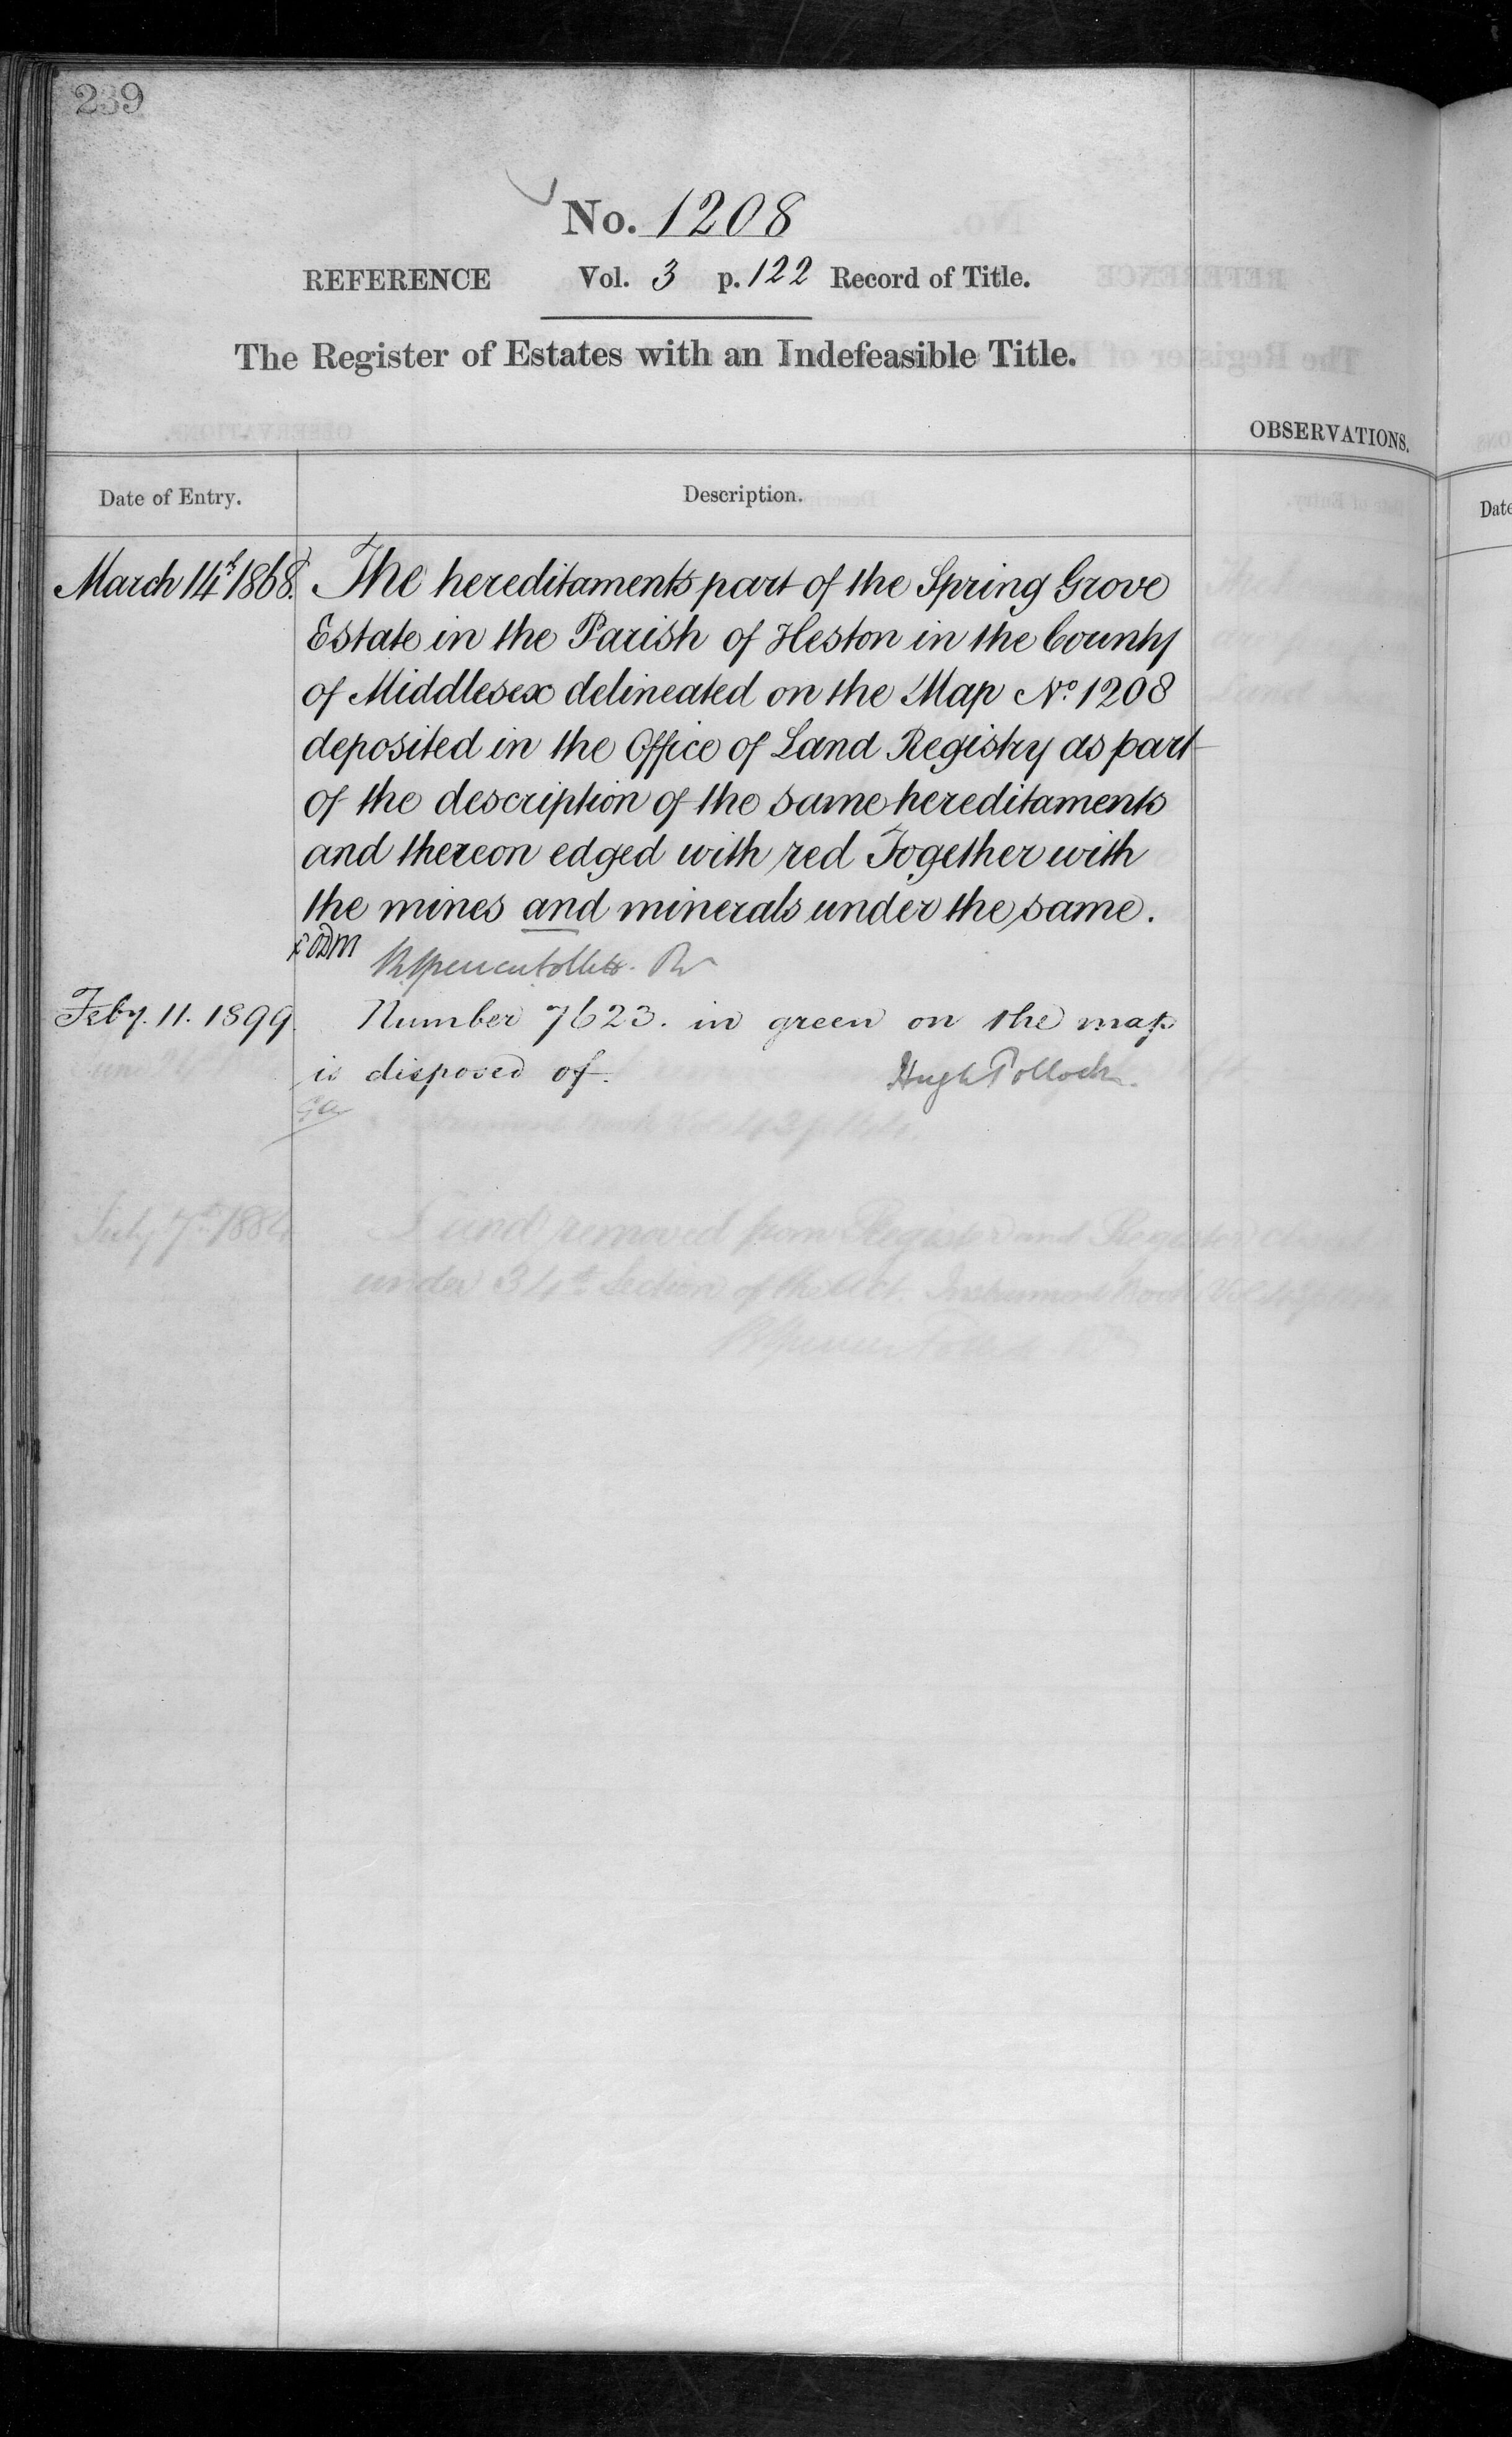 239
No. 1208
REFERENCE Vol. 3 p. 122 Record of Title.
The Register of Estates with an Indefeasible Title.
OBSERVATIONS.
Date of Entry. Description.
March 14th 1868. The hereditaments part of the Spring Grove
Estate in the Parish of Heston in the County
of Middlesex delineated on the Map No. 1208
deposited in the Office of Land Registry as part
of the description of the same hereditaments
and thereon edged with red Together with
the mines and minerals under the same.
Feby. 11. 1899. Number 7623. in green on the map
is disposed of. Hugh Pollock.
Date